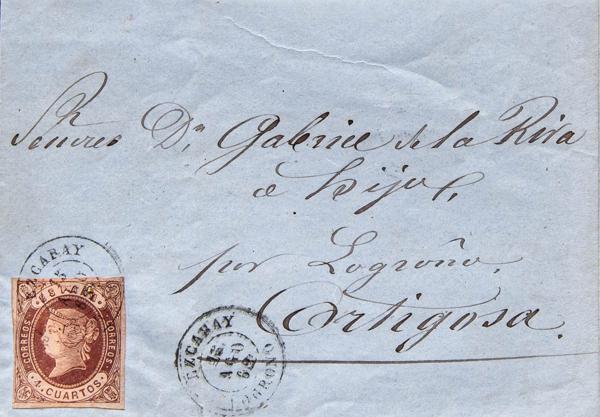 Señores Dn Gabriel de la Riva
é Hijos,
por Logroño,
Ortigosa.
EZCARAY
ESPAÑA
CORREOS
CORREOS
4 CUARTOS
EZCARAY
AGO
LOGROÑO